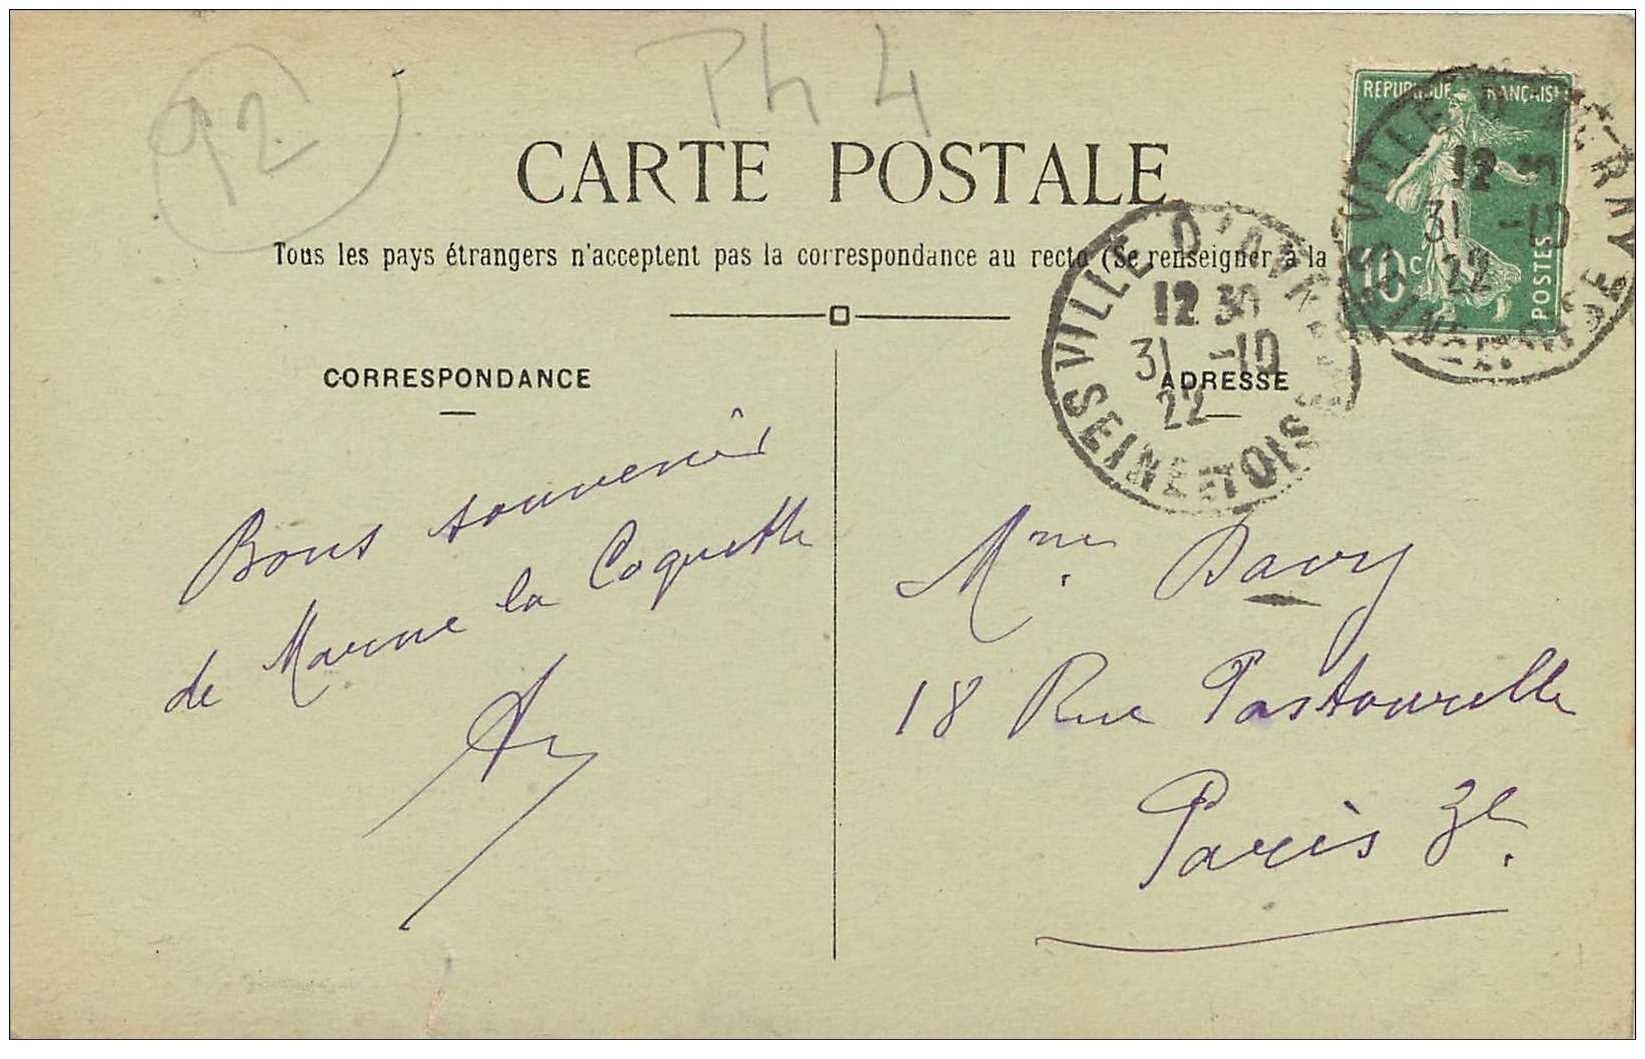 92
Ph 4
CARTE POSTALE
Tous les pays étrangers n'acceptent pas la correspondance au recto (Se renseigner à la
REPUBLIQUE FRANÇAISE
10 c
POSTES
VILLE D'AVRAY
12 30
31 -10
22
SEINE-ET-OISE
VILLE D'AVRAY
12 3
31 -10
22
SEINE-ET-OISE
CORRESPONDANCE
Bons souvenirs
de Marne la Coquette
ADRESSE
Mme. Davy
18 Rue Pastourelle
Paris 3e.